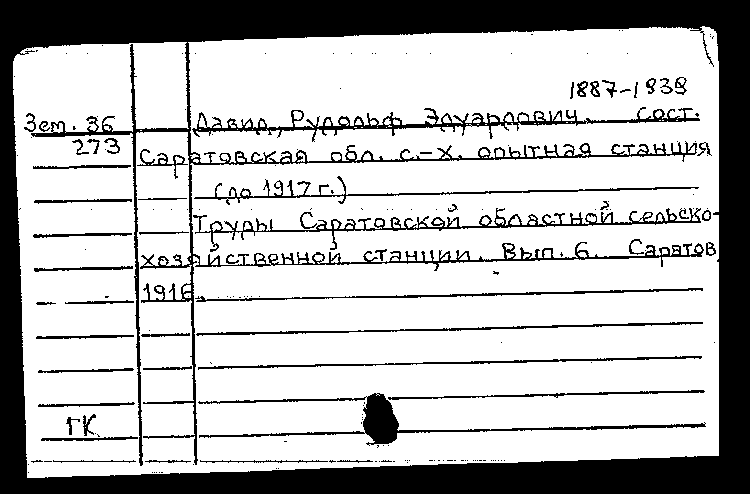 1887-1939
Зет. 36 Давид, Рудольф Эдуардович. сост.
273 Саратовская обл. с.-х. опытная станция
(до 1917 г.)
Труды Саратовской областной сельско-
хозяйственной станции. Вып. 6. Саратов,
1916.
ГК